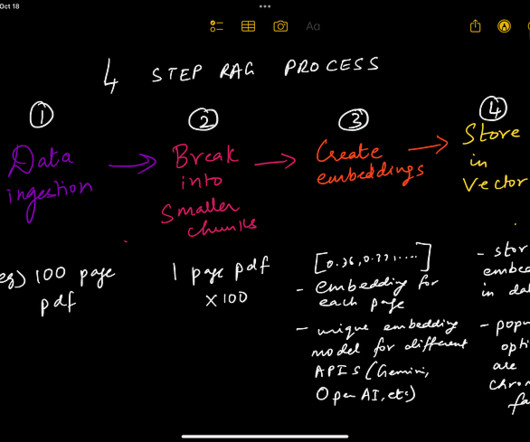 Oct 18
Aa
4 STEP RAG PROCESS
1
Data
ingestion
2
Break
into
smaller
chunks
3
Create
embeddings
4
Store
in
Vector
eg) 100 page
pdf
1 page pdf
x 100
[0.36, 0.77, ....]
- embedding for
each page
- unique embedding
model for different
APIs (Gemini,
Open AI, etc)
- stor
embed
in dat
- popu
optio
are
chrom
fa